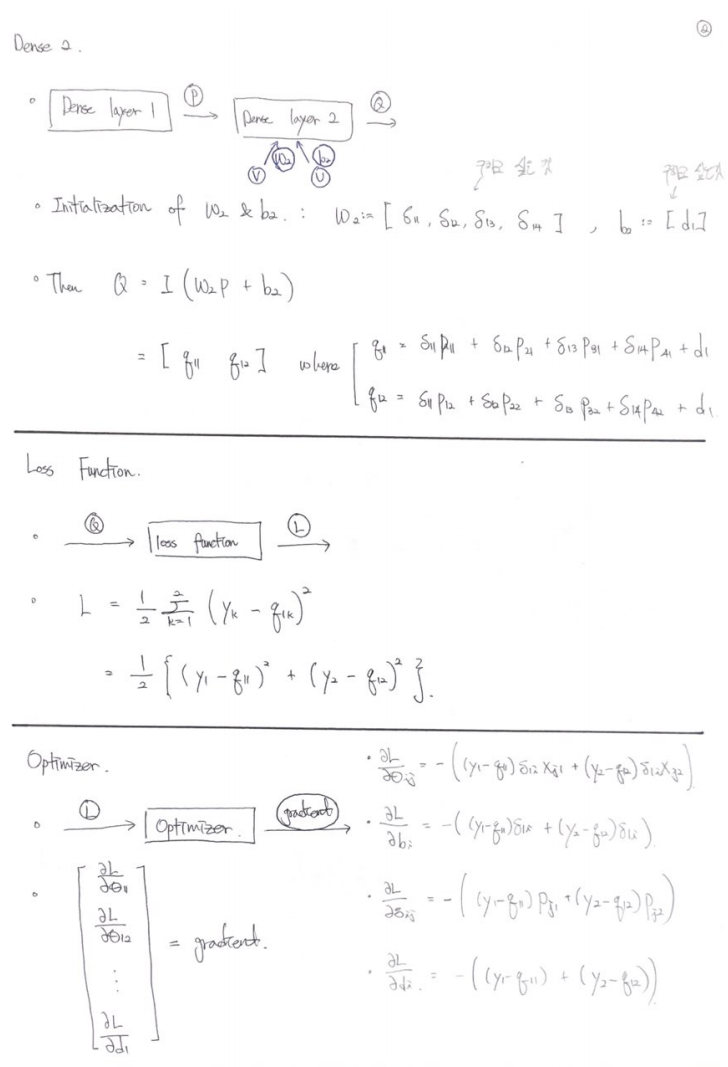 ②
Dense 2.
∘ Dense layer 1 → Ⓟ Dense layer 2 → Ⓠ
Ⓥ W₂ b₂ Ⓤ
구하고 싶은 것 구하고 싶은 것
∘ Initialization of W₂ & b₂. : W₂ := [ δ₁₁, δ₁₂, δ₁₃, δ₁₄ ] , b₂ := [d₁]
∘ Then Q = I (W₂P + b₂)
= [ q₁₁ q₁₂ ] where [ q₁₁ = δ₁₁p₁₁ + δ₁₂p₂₁ + δ₁₃p₃₁ + δ₁₄p₄₁ + d₁
q₁₂ = δ₁₁p₁₂ + δ₁₂p₂₂ + δ₁₃p₃₂ + δ₁₄p₄₂ + d₁
Loss Function.
∘ Ⓠ → loss function Ⓛ →
∘ L = 1/2 Σ_{k=1}^{2} (y_k - q_{1k})²
= 1/2 { (y₁ - q₁₁)² + (y₂ - q₁₂)² }.
Optimizer.
∘ Ⓛ → Optimizer. gradient →
∘ [ ∂L/∂θ₁₁
∂L/∂θ₁₂
⋮
∂L/∂d₁ ] = gradient.
· ∂L/∂θᵢⱼ = -((y₁-q₁₁)δ₁ᵢxⱼ₁ + (y₂-q₁₂)δ₁ᵢxⱼ₂)
· ∂L/∂bᵢ = -((y₁-q₁₁)δ₁ᵢ + (y₂-q₁₂)δ₁ᵢ)
· ∂L/∂δᵢⱼ = -((y₁-q₁₁)pⱼ₁ + (y₂-q₁₂)pⱼ₂)
· ∂L/∂dᵢ = -((y₁-q₁₁) + (y₂-q₁₂))